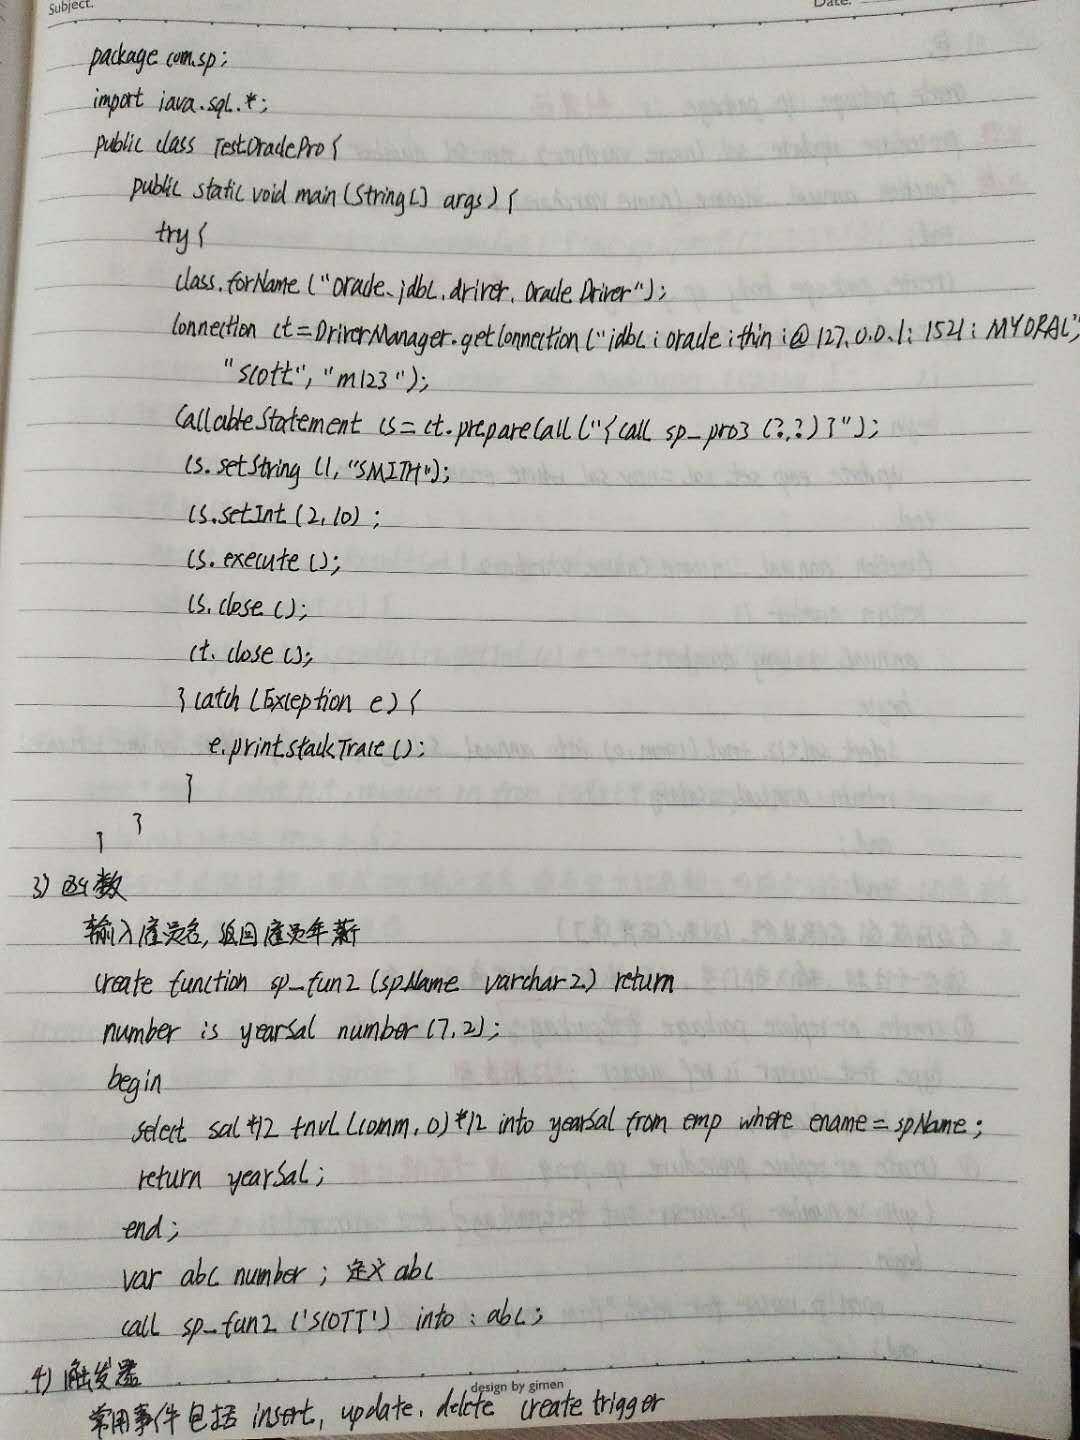 Subject:
Date:
package com.sp;
import java.sql.*;
public class TestOraclePro{
public static void main(String[] args){
try{
class.forName("oracle.jdbc.driver.OracleDriver");
Connection ct=DriverManager.getConnection("jdbc:oracle:thin:@127.0.0.1:1521:MYORAL",
"scott","m123");
CallableStatement cs=ct.prepareCall("{call sp_pro3(?,?)}");
cs.setString(1,"SMITH");
cs.setInt(2,10);
cs.execute();
cs.close();
ct.close();
}catch(Exception e){
e.printstackTrace();
}
}
}
3)函数
输入雇员名,返回雇员年薪
create function sp_fun2(spName varchar2) return
number is yearsal number(7,2);
begin
select sal*12+nvl(comm,0)*12 into yearsal from emp where ename=spName;
return yearsal;
end;
var abc number; 定义abc
call sp_fun2('SCOTT') into:abc;
4)触发器
design by gimen
常用事件包括insert, update, delete create trigger